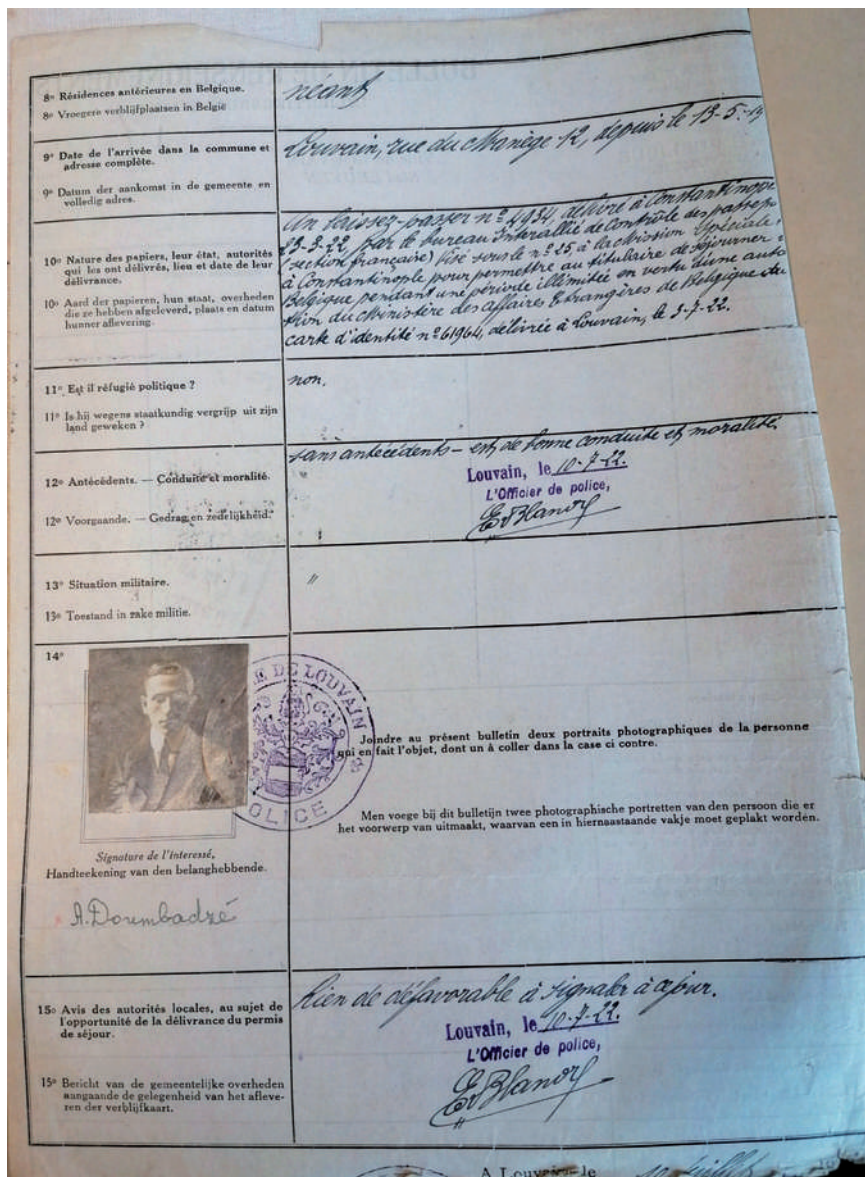 8º Résidences antérieures en Belgique.
8º Vroegere verblijfplaatsen in België
néant
9º Date de l'arrivée dans la commune et
adresse complète.
9º Datum der aankomst in de gemeente en
volledig adres.
Louvain, rue du Manège 12, depuis le 13-5-
10º Nature des papiers, leur état, autorités
qui les ont délivrés, lieu et date de leur
délivrance.
10º Aard der papieren, hun staat, overheden
die ze hebben afgeleverd, plaats en datum
hunner aflevering.
Un laissez-passer nº 4934, délivré à Constantinople
23-3-22, par le bureau Interallié de Contrôle des passep
(section française) Visé sous le nº 25, à la Mission Spéciale,
à Constantinople pour permettre au titulaire de séjourner
Belgique pendant une période illimitée en vertu d'une auto
tion du Ministère des affaires Etrangères de Belgique du
carte d'identité nº 61964, délivrée à Louvain, le 3-7-22.
11º Est il réfugié politique ?
11º Is hij wegens staatkundig vergrijp uit zijn
land geweken ?
non.
12º Antécédents. — Conduite et moralité.
12º Voorgaande. — Gedrag en zedelijkheid.
sans antécédents – est de bonne conduite et moralité.
Louvain, le 10-7-22.
L'Officier de police,
13º Situation militaire.
13º Toestand in zake militie.
"
14º
VILLE DE LOUVAIN
POLICE
Joindre au présent bulletin deux portraits photographiques de la personne
qui en fait l'objet, dont un à coller dans la case ci contre.
Men voege bij dit bulletijn twee photographische portretten van den persoon die er
het voorwerp van uitmaakt, waarvan een in hiernaastaande vakje moet geplakt worden.
Signature de l'interessé,
Handteekening van den belanghebbende.
A. Doumbadzé
15º Avis des autorités locales, au sujet de
l'opportunité de la délivrance du permis
de séjour.
15º Bericht van de gemeentelijke overheden
aangaande de gelegenheid van het afleve-
ren der verblijfkaart.
Rien de défavorable à signaler à ce jour.
Louvain, le 10-7-22.
L'Officier de police,
A Louvain le 10 juillet